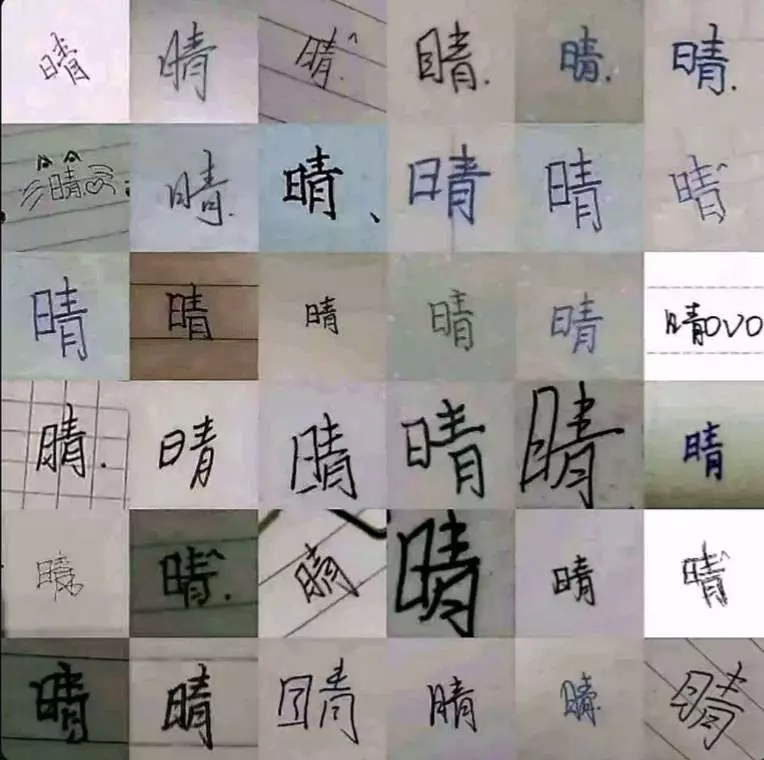 晴 晴 晴^. 晴. 晴. 晴.
晴♡ 晴. 晴、 晴 晴 晴^
晴 晴 晴 晴 晴 晴OVO
晴. 晴 晴 晴 晴 晴
晴 晴^. 晴 晴 晴 晴^
晴 晴 晴 晴 晴. 晴